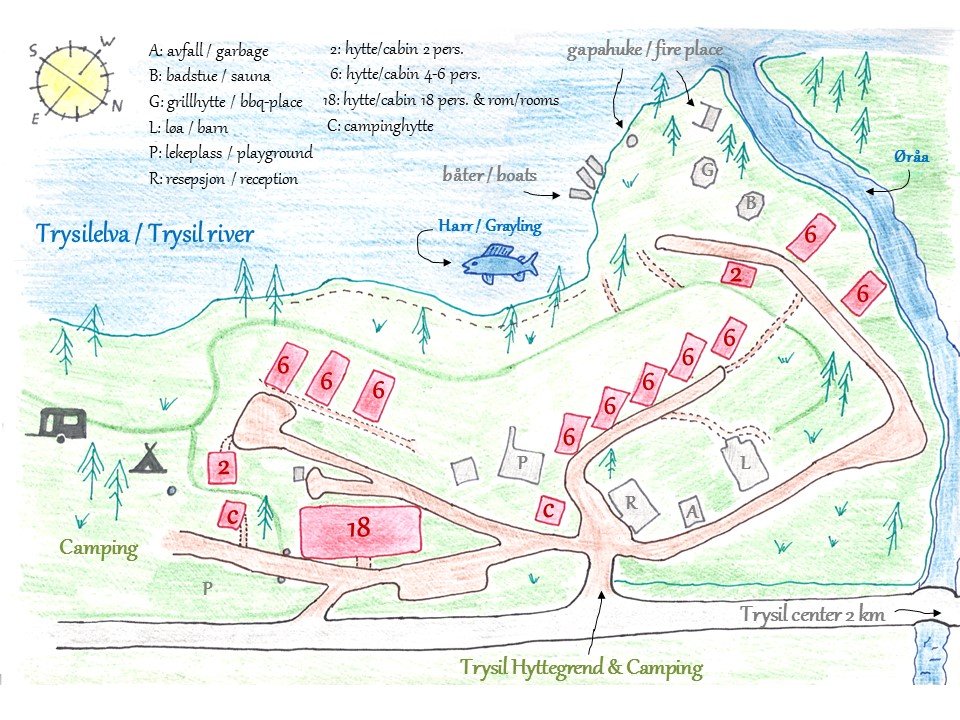 S
W
N
E
A: avfall / garbage
B: badstue / sauna
G: grillhytte / bbq-place
L: løa / barn
P: lekeplass / playground
R: resepsjon / reception
2: hytte/cabin 2 pers.
6: hytte/cabin 4-6 pers.
18: hytte/cabin 18 pers. & rom/rooms
C: campinghytte
gapahuke / fire place
båter / boats
Øråa
Trysilelva / Trysil river
Harr / Grayling
G
B
6
2
6
6
6
6
6
6
6
6
6
P
L
2
R
A
C
C
18
Camping
P
Trysil center 2 km
Trysil Hyttegrend & Camping